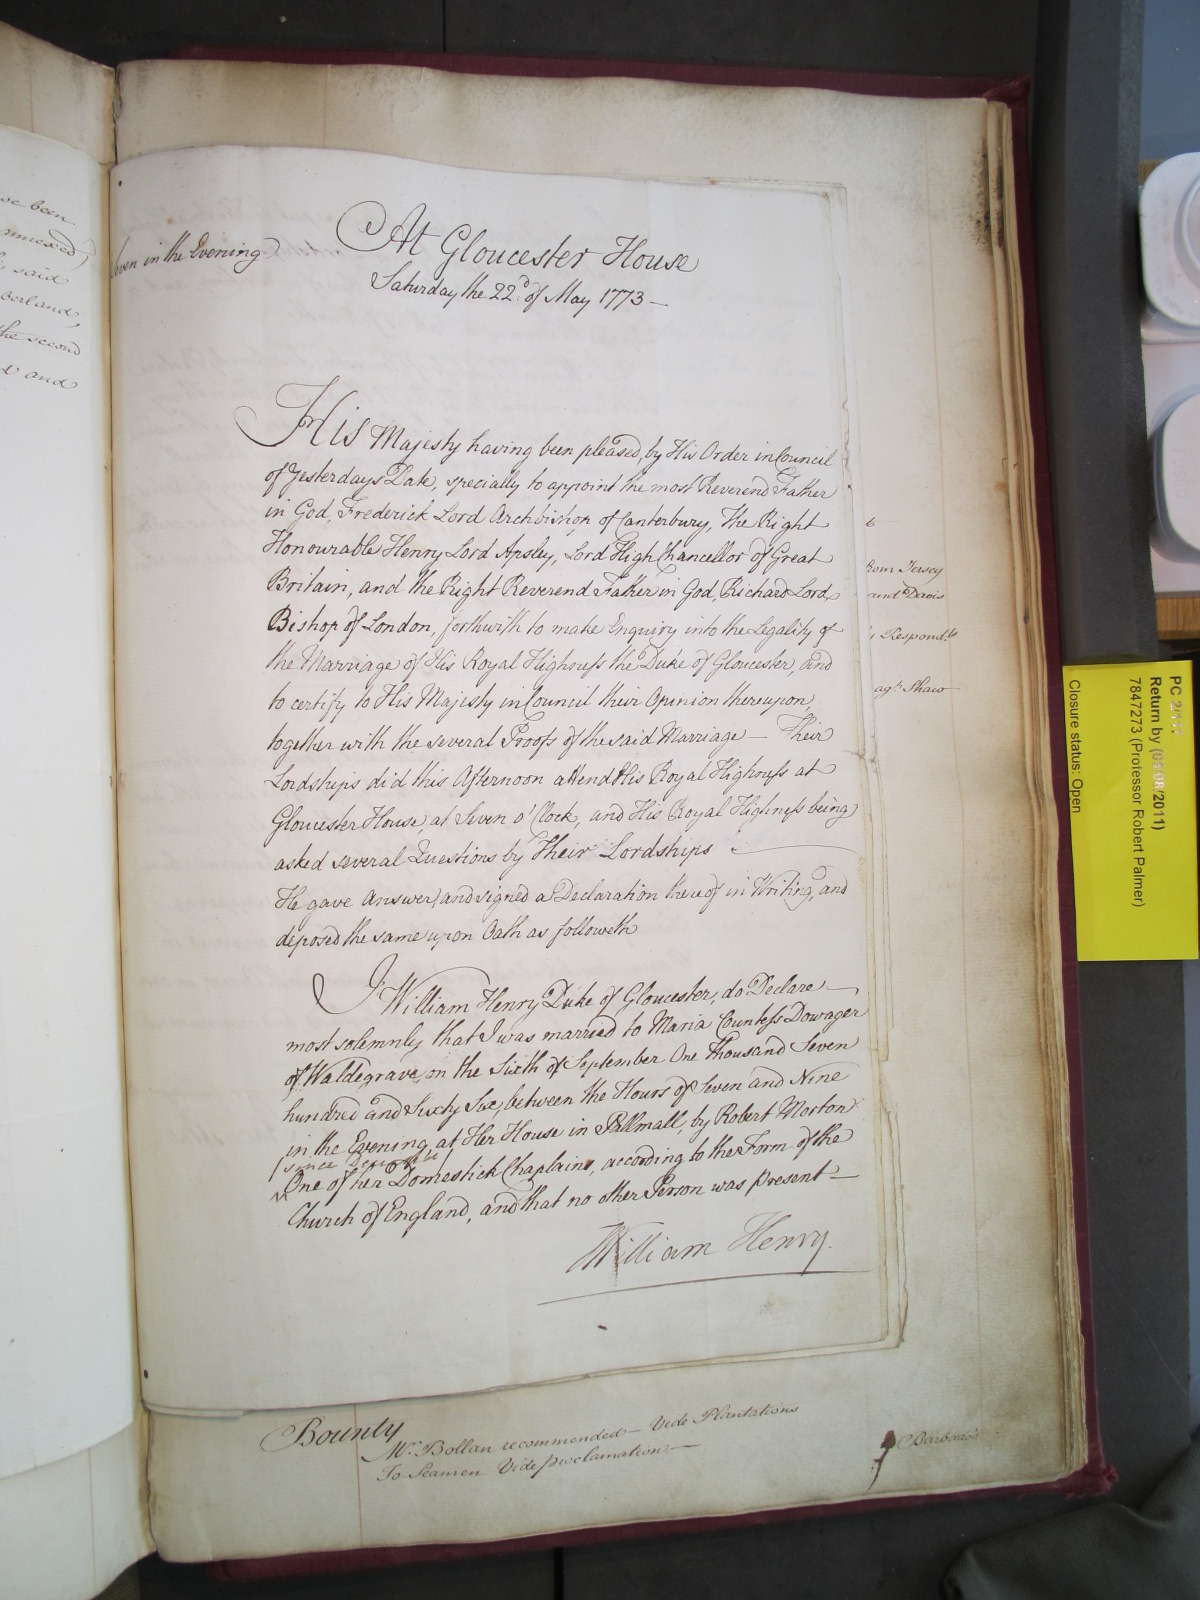 ve been
nnexed,
y said
berland,
the second
x and
Seven in the Evening
At Gloucester House
Saturday the 22.d of May 1773 —
His Majesty having been pleased, by His Order in Council
of Yesterdays Date, specially to appoint the most Reverend Father
in God, Frederick Lord Archbishop of Canterbury, The Right
Honourable Henry Lord Apsley, Lord High Chancellor of Great
Britain, and the Right Reverend Father in God, Richard Lord
Bishop of London, forthwith to make Enquiry into the Legality of
the Marriage of His Royal Highness the Duke of Gloucester, and
to certify to His Majesty in Council their Opinion thereupon,
together with the several Proofs of the said Marriage — Their
Lordships did this Afternoon attend His Royal Highness at
Gloucester House, at Seven o'Clock, and His Royal Highness being
asked several Questions by Their Lordships
He gave Answer, and signed a Declaration thereof in Writing, and
deposed the same upon Oath as followeth
I William Henry Duke of Gloucester, do Declare
most solemnly that I was married to Maria Countess Dowager
of Waldegrave, on the Sixth of September One Thousand Seven
hundred and Sixty Six, between the Hours of Seven and Nine
in the Evening, at Her House in Pallmall, by Robert Morton
since
One of her Domestick Chaplains, according to the Form of the
Church of England, and that no other Person was present —
William Henry.
rom Jersey
and Davis
Respond.ts
agt. Shaw
Bounty
Mr. Bollan recommended — Vide Plantations
Barbados
To Seamen Vide Proclamation —
PC 2/117
Return by (04/08/2011)
7847273 (Professor Robert Palmer)
Closure status: Open